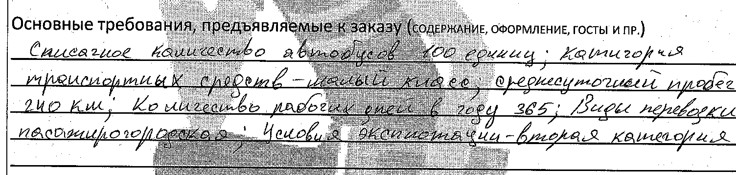 Основные требования, предъявляемые к заказу (СОДЕРЖАНИЕ, ОФОРМЛЕНИЕ, ГОСТЫ И ПР.)
Списачное количество автобусов 100 единиц; категория
транспортных средств - малый класс, среднесуточный пробег
240 км; Количество рабочих дней в году 365; Виды перевозки
пасажирогородская; Условия эксплотации - вторая категория